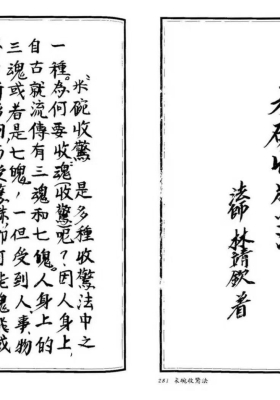 米碗收驚法
法師 林靖欽 著
281 米碗收驚法
“米碗收驚”是多種收驚法中之
一種。為何要收魂收驚呢?因人身上,
自古就流傳有三魂和七魄。人身上的
三魂或者是七魄,一但受到人、事、物